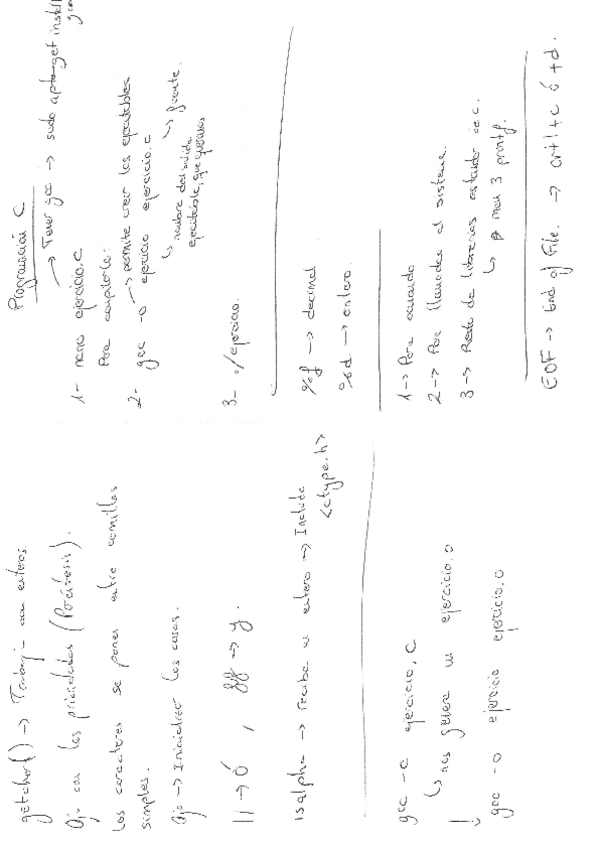 Programación C
→ Tener gcc → sudo apt-get install
gcc
1- nano ejercicio.c
Para compilarlo:
2- gcc -o ejercicio ejercicio.c
→ permite crear los ejecutables
↳ nombre del
ejecutable, que queramos
↳ fuente.
3- ./ejercicio.
%f → decimal
%d → entero.
1 → Para comando
2 → Para llamadas al sistema.
3 → Resto de librerías estándar de c.
↳ man 3 printf.
EOF → End of File. → crtl + c ó + d.
getchar() → Trabaja con enteros
Ojo con las prioridades (Paréntesis).
Los caracteres se ponen entre comillas
simples.
Ojo → Inicializar las cosas.
|| → ó , && → y.
Isalpha → recibe un entero → Include
<ctype.h>
gcc -c ejercicio.c
↳ nos genera un ejercicio.o
↓
gcc -o ejercicio ejercicio.o